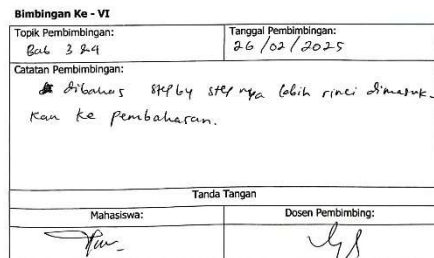 Bimbingan Ke - VI
Topik Pembimbingan:
Bab 3 &4
Tanggal Pembimbingan:
26/02/2025
Catatan Pembimbingan:
dibahas step by step nya lebih rinci dimasuk-
kan ke pembahasan.
Tanda Tangan
Mahasiswa:
Dosen Pembimbing: